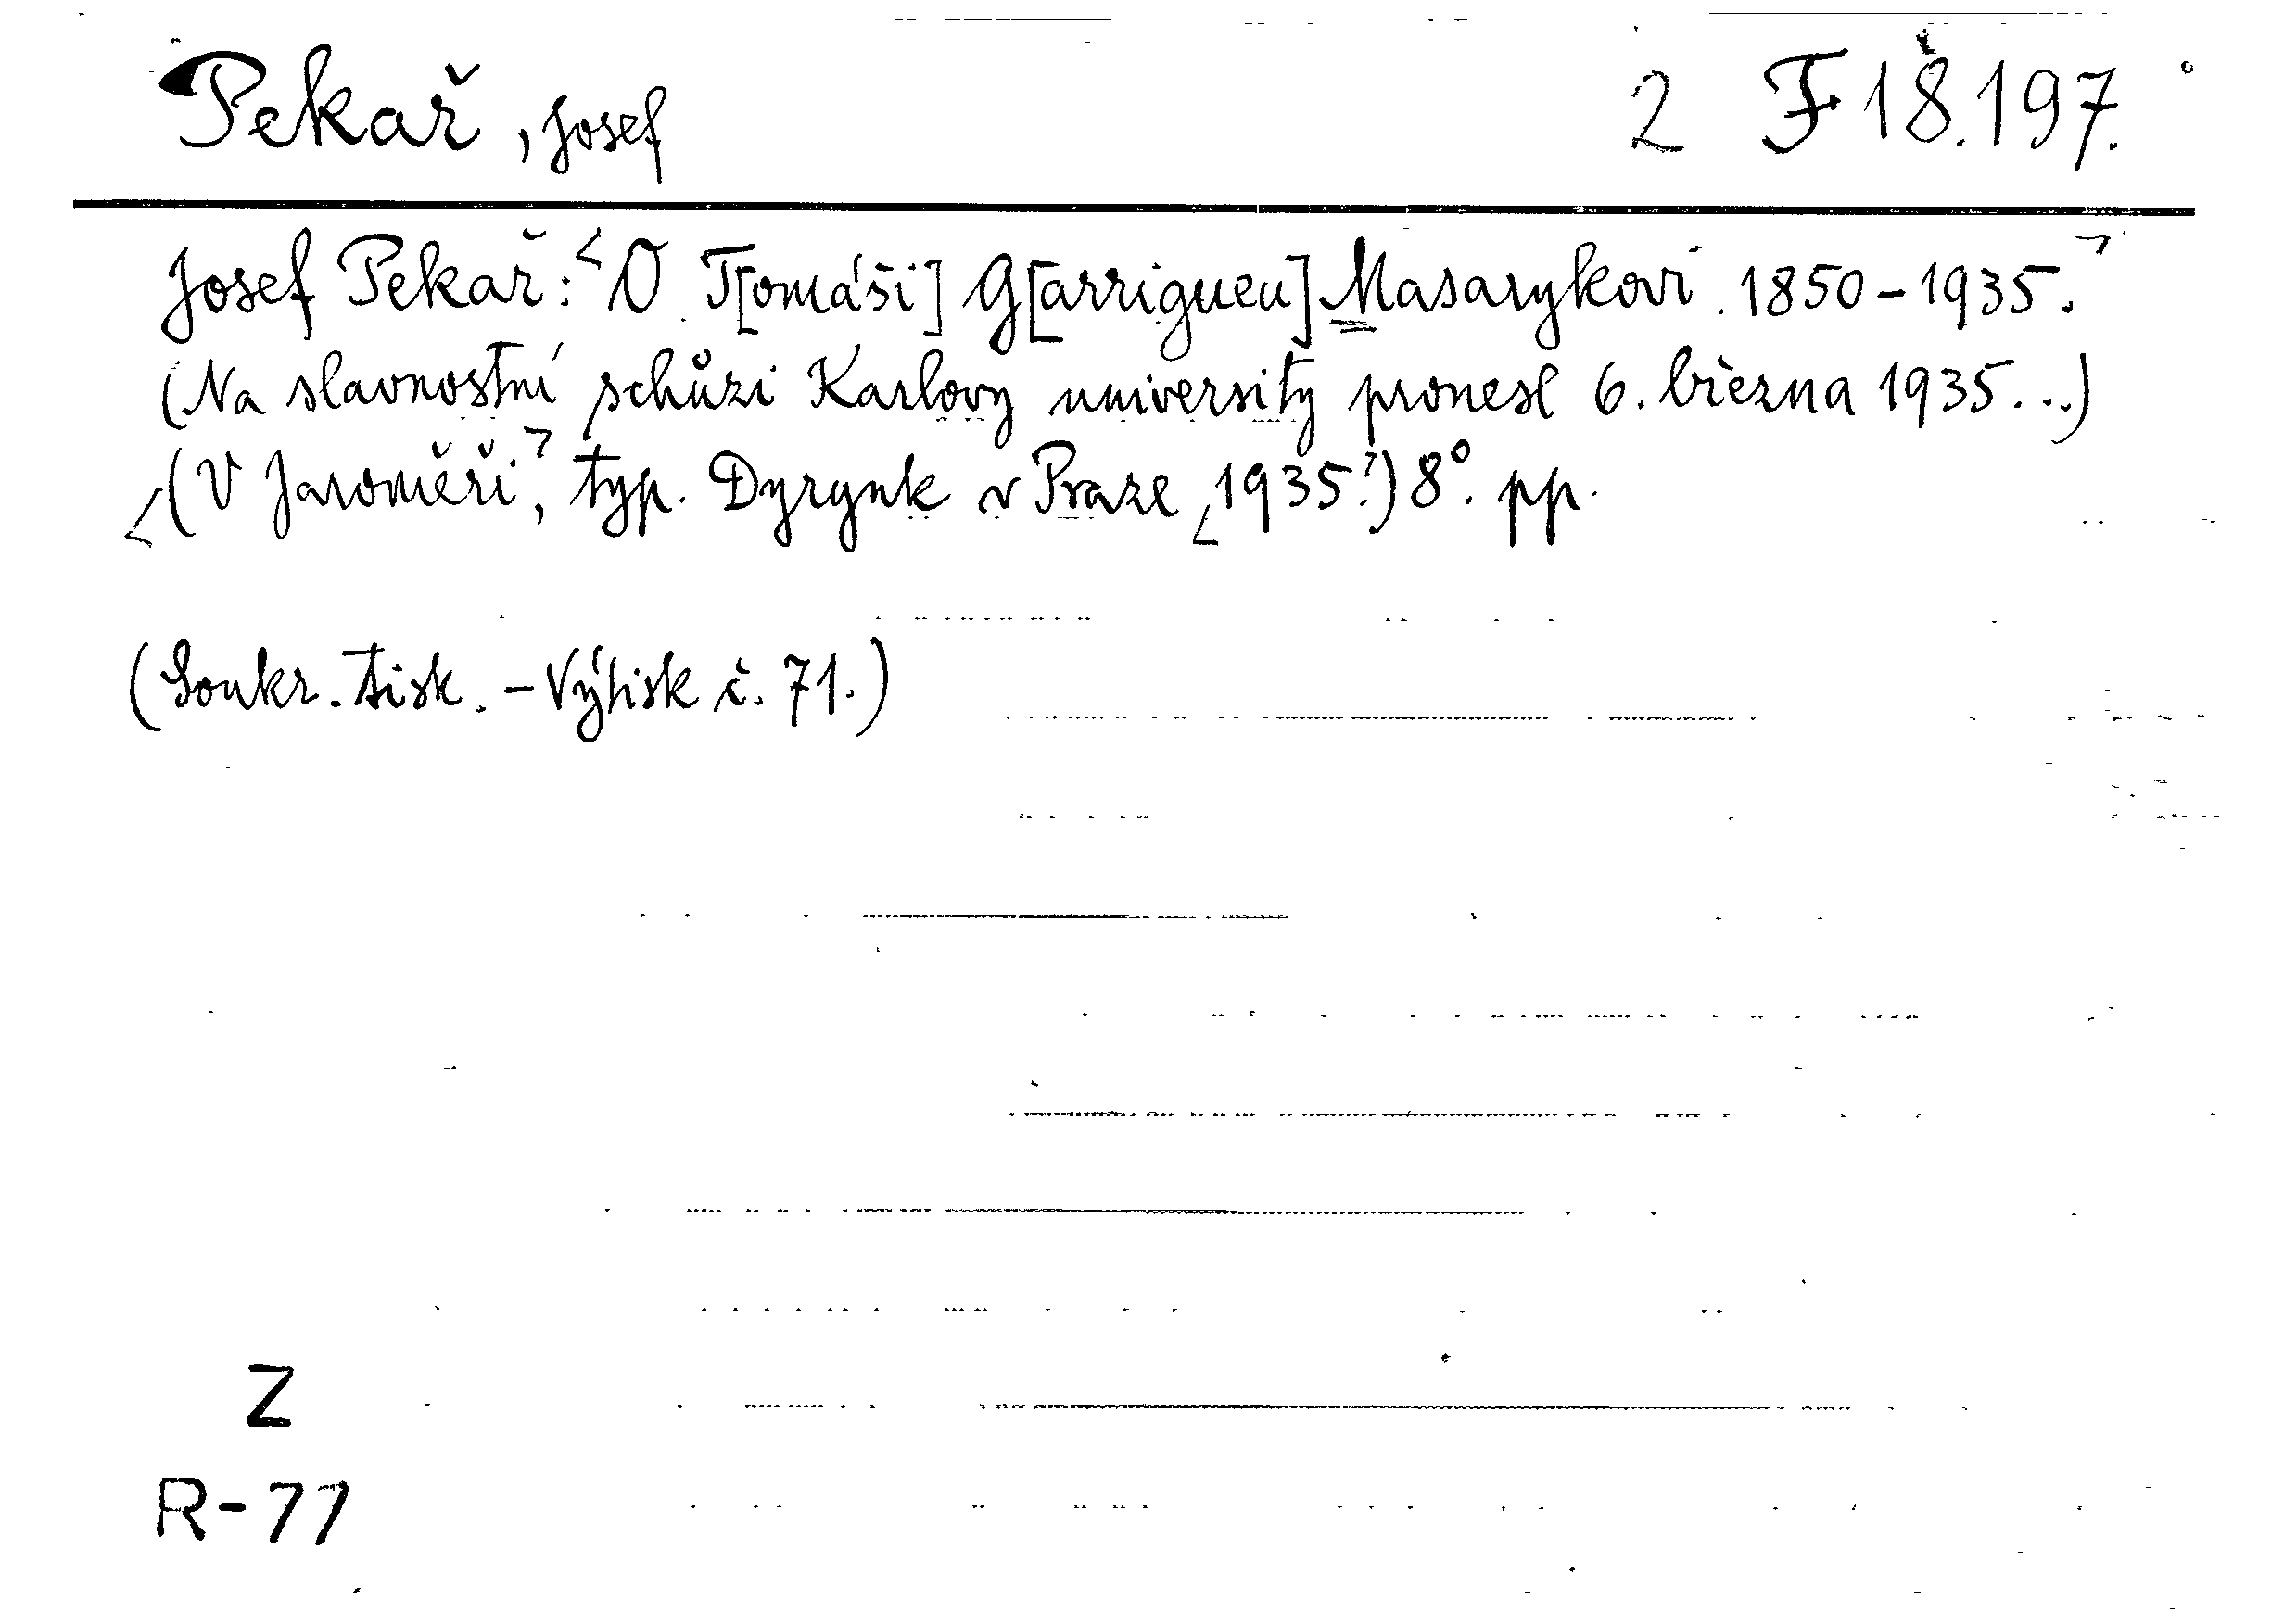 Pekař, Josef 2 F 18.197.
Josef Pekař: <O T[omáši] G[arrigueu] Masarykovi. 1850-1935.>
(Na slavnostní schůzi Karlovy university pronesl 6. března 1935...)
<(V Jaroměři>, typ. Dyrynk v Praze <1935.>) 8°. pp.
(Soukr. tisk. - Výtisk č. 71.)
Z
R-77